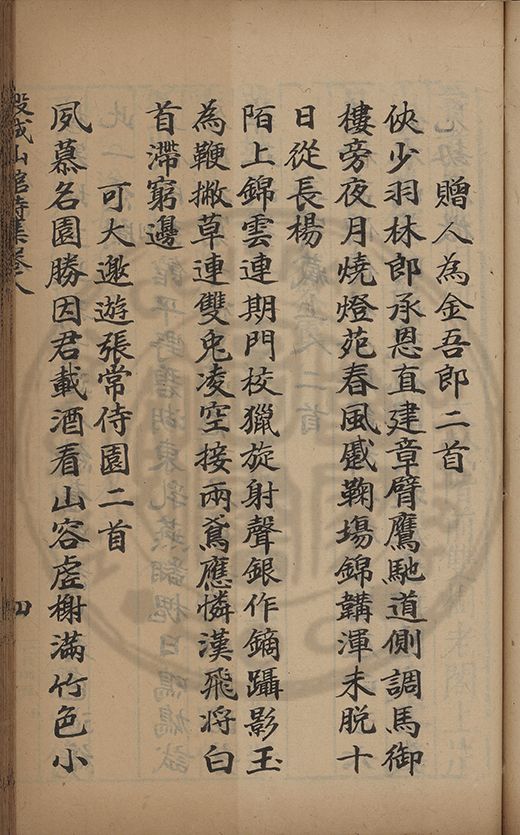 贈人為金吾郎二首
俠少羽林郎承恩直建章臂鷹馳道側調馬御
樓旁夜月燒燈苑春風蹙鞠場錦韝渾未脫十
日從長楊
陌上錦雲連期門校獵旋射聲銀作鏑躡影玉
為鞭撇草連雙兎凌空接兩鳶應憐漢飛將白
首滯窮邊
可大邀遊張常侍園二首
夙慕名園勝因君載酒看山容虛榭滿竹色小
穀城山館詩集卷八
四